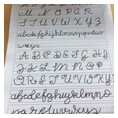 M N O P Q R
S T U V W X Y Z
abcdefghijklmnopqrstuv
wxyz
A B C D E F G H
I J K L M N O P
Q R S T U V W X Y Z
abcdefghijklmno
pqrstuvwxyz